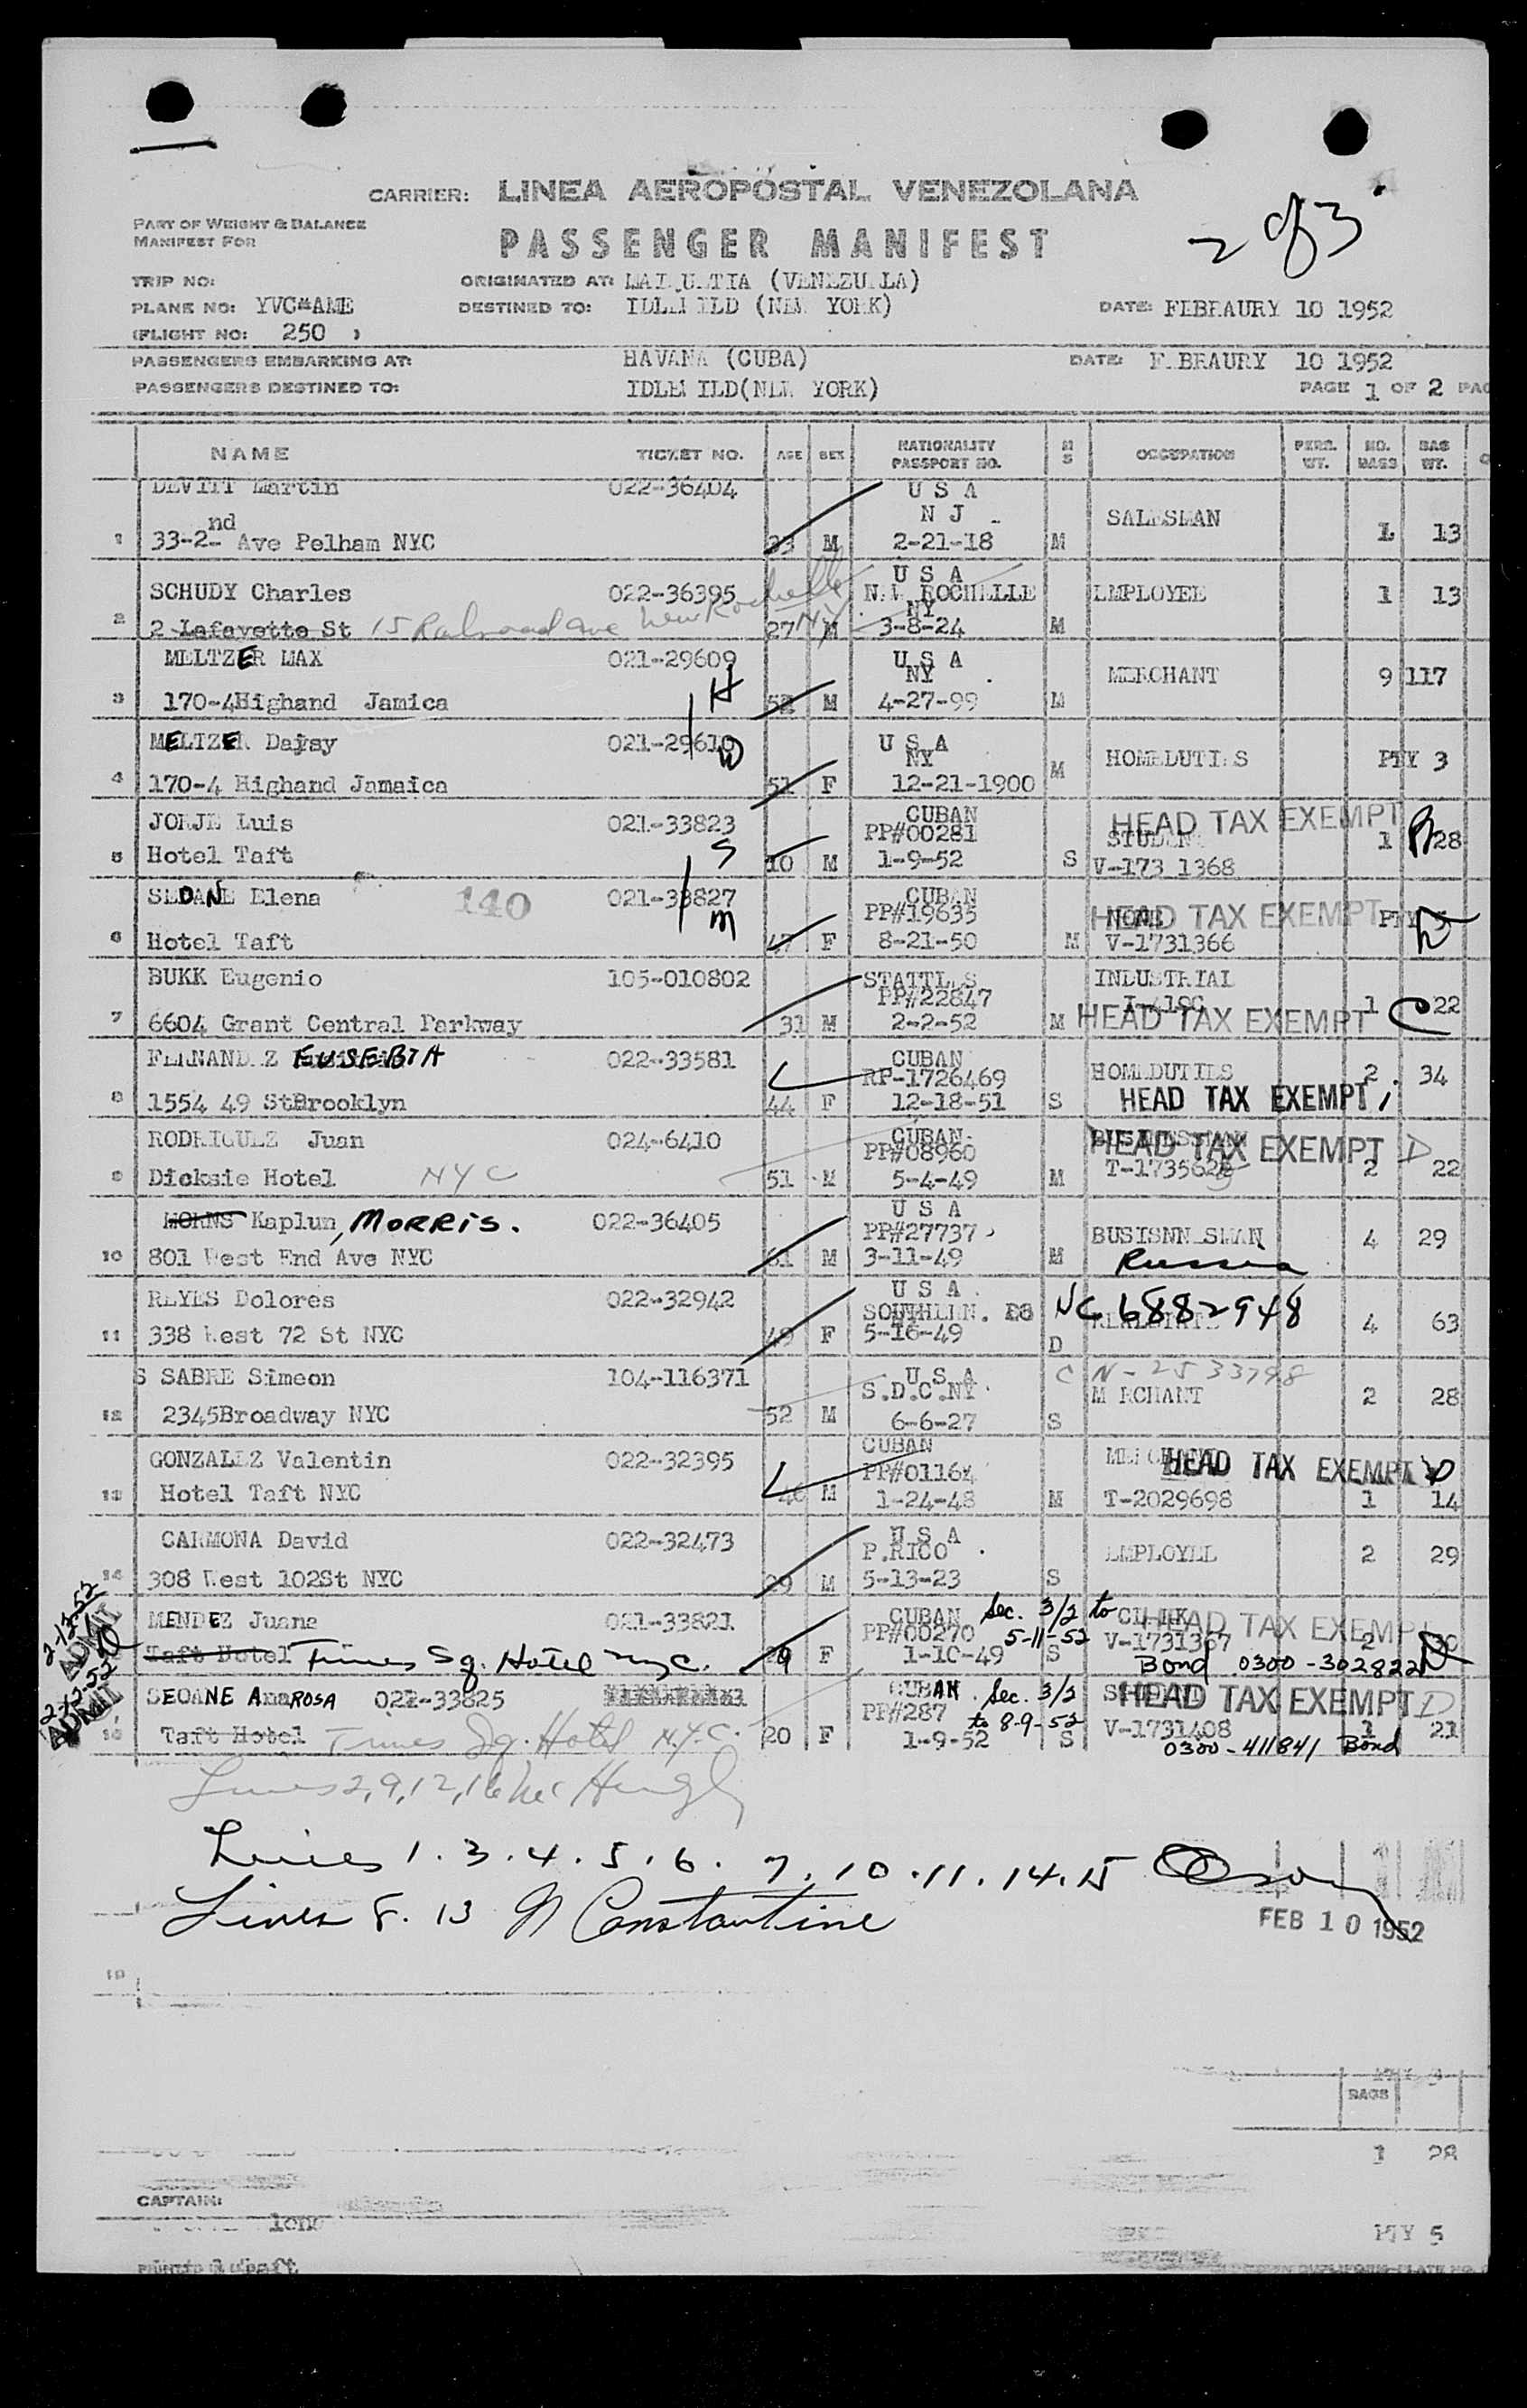 2 of 3
CARRIER: LINEA AEROPOSTAL VENEZOLANA
PART OF WEIGHT & BALANCE
MANIFEST FOR
PASSENGER MANIFEST
TRIP NO: ORIGINATED AT: MAIQUETIA (VENEZUELA)
PLANE NO: YVC*AME DESTINED TO: IDLEWILD (NEW YORK) DATE: FEBRAURY 10 1952
(FLIGHT NO: 250 )
PASSENGERS EMBARKING AT: HAVANA (CUBA) DATE: FEBRAURY 10 1952
PASSENGERS DESTINED TO: IDLEWILD(NEW YORK) PAGE 1 OF 2 PAG
NAME TICKET NO. AGE SEX NATIONALITY PASSPORT NO. M S OCCUPATION PERS. WT. NO. BAGS BAG WT.
DEVITT Martin 022-36404 U S A
N J SALESMAN
1 33-2nd Ave Pelham NYC 33 M 2-21-18 M 1 13
SCHUDY Charles 022-36395 U S A
NEW ROCHELLE EMPLOYEE 1 13
NY
2 2 Lafayette St 15 Railroad ave New Rochelle NY 27 M 3-8-24 M
MELTZER MAX 021-29609 U S A
NY MERCHANT 9 117
3 170-4Highand Jamica H 52 M 4-27-99 M
MELTZER Daysy 021-29610 W U S A
NY HOMEDUTIES PTY 3
4 170-4 Highand Jamaica 51 F 12-21-1900 M
JORJE Luis 021-33823 CUBAN HEAD TAX EXEMPT
PP#00281 STUDENT 1 28
5 Hotel Taft S 10 M 1-9-52 S V-173 1368
SEOANE Elena 140 021-33827 CUBAN
PP#19635 NONE HEAD TAX EXEMPT PTY 5
6 Hotel Taft m 47 F 8-21-50 M V-1731366
BUKK Eugenio 105-010802 STATTLES INDUSTRIAL
PP#22847 1 22
7 6604 Grant Central Parkway 31 M 2-2-52 M HEAD TAX EXEMPT
FERNANDEZ EUSEBIA 022-33581 CUBAN
RP-1726469 HOMEDUTIES 2 34
8 1554 49 StBrooklyn 44 F 12-18-51 S HEAD TAX EXEMPT
RODRIGUEZ Juan 024-6410 CUBAN
PP#08960 HEAD TAX EXEMPT D
9 Dicksie Hotel NYC 51 M 5-4-49 M 2 22
MORNS Kaplun, MORRIS. 022-36405 U S A
PP#27737 BUSISNNESMAN 4 29
10 801 West End Ave NYC 61 M 3-11-49 M Russia
REYES Dolores 022-32942 U S A
SOUTHERN. NC 6882948 4 63
11 338 West 72 St NYC 49 F 5-16-49 D
S SABRE Simeon 104-116371 U S A C N-2533798
S.D.C.NY MERCHANT 2 28
12 2345Broadway NYC 52 M 6-6-27 S
GONZALEZ Valentin 022-32395 CUBAN
PP#01164 HEAD TAX EXEMPT
13 Hotel Taft NYC 46 M 1-24-48 M T-2029698 1 14
CARMONA David 022-32473 U S A
P.RICO EMPLOYEE 2 29
14 308 West 102St NYC 29 M 5-13-23 S
2-12-52
ADMIT
MENDEZ Juana 021-33821 CUBAN Sec. 3/2 to CLERK HEAD TAX EXEMPT
PP#00270 5-11-52 V-1731367 2 30
Taft Hotel Times Sq. Hotel nyc. 29 F 1-10-49 S Bond 0300-302822
2-12-52
ADMIT
SEOANE AnaROSA 021-33825 CUBAN. Sec. 3/2 HEAD TAX EXEMPT D
PP#287 to 8-9-52
16 Taft Hotel Times Sq. Hotel N.Y.C. 20 F 1-9-52 S V-1731408 1 21
0300-411841 Bond
Lines 2,9,12,16
Lines 1.3.4.5.6.7.10.11.14.15
Lines 8. 13 N Constantine
FEB 10 1952
19
BAGS
1 28
CAPTAIN:
PTY 5